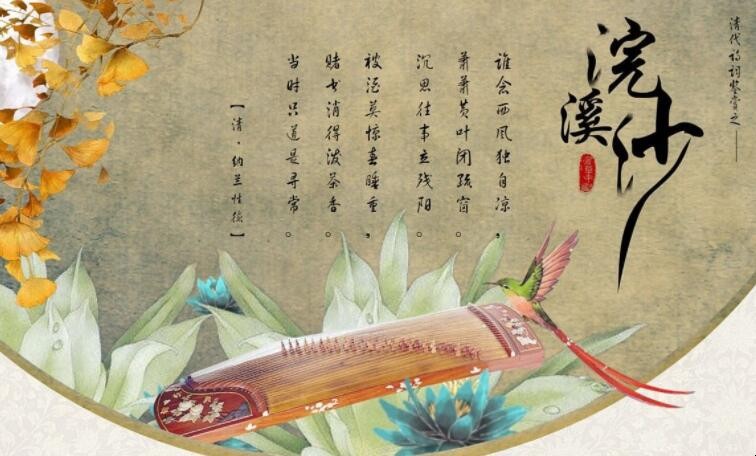 清代诗词鉴赏之——
浣溪沙
谁念西风独自凉，
萧萧黄叶闭疏窗。
沉思往事立残阳。
被酒莫惊春睡重，
赌书消得泼茶香。
当时只道是寻常。
【清·纳兰性德】